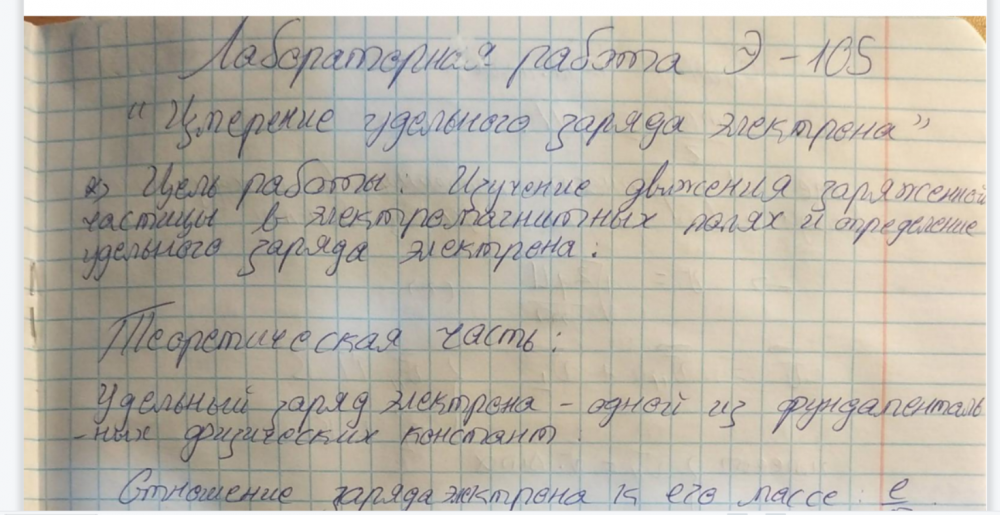 Лабораторная работа Э-105
"Измерение удельного заряда электрона"
Цель работы: Изучение движения заряженной
частицы в электромагнитных полях и определение
удельного заряда электрона.
Теоретическая часть:
Удельный заряд электрона - одной из фундаменталь
-ных физических констант.
Отношение заряда электрона к его массе: e